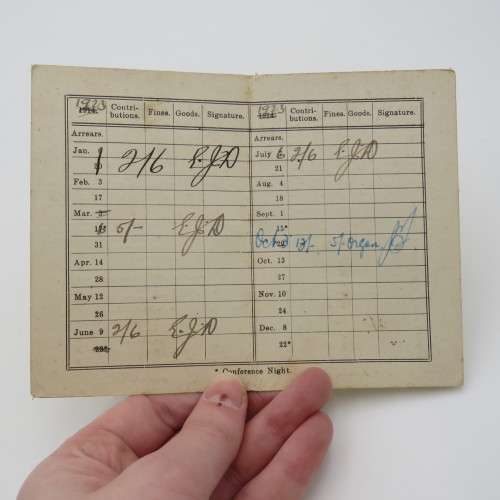 1923 Contri- butions. Fines. Goods. Signature.
Arrears.
Jan. 2/6 E.J.D
Feb. 3
17
Mar. 3
5/- E.J.D
31
Apr. 14
28
May 12
26
June 9 2/6 E.J.D
1923 Contri- butions. Fines. Goods. Signature.
Arrears.
July 6 2/6 E.J.D
21
Aug. 4
18
Sept. 1
15*
Oct 5/- Organ
Oct. 13
27
Nov. 10
24
Dec. 8
22*
* Conference Night.